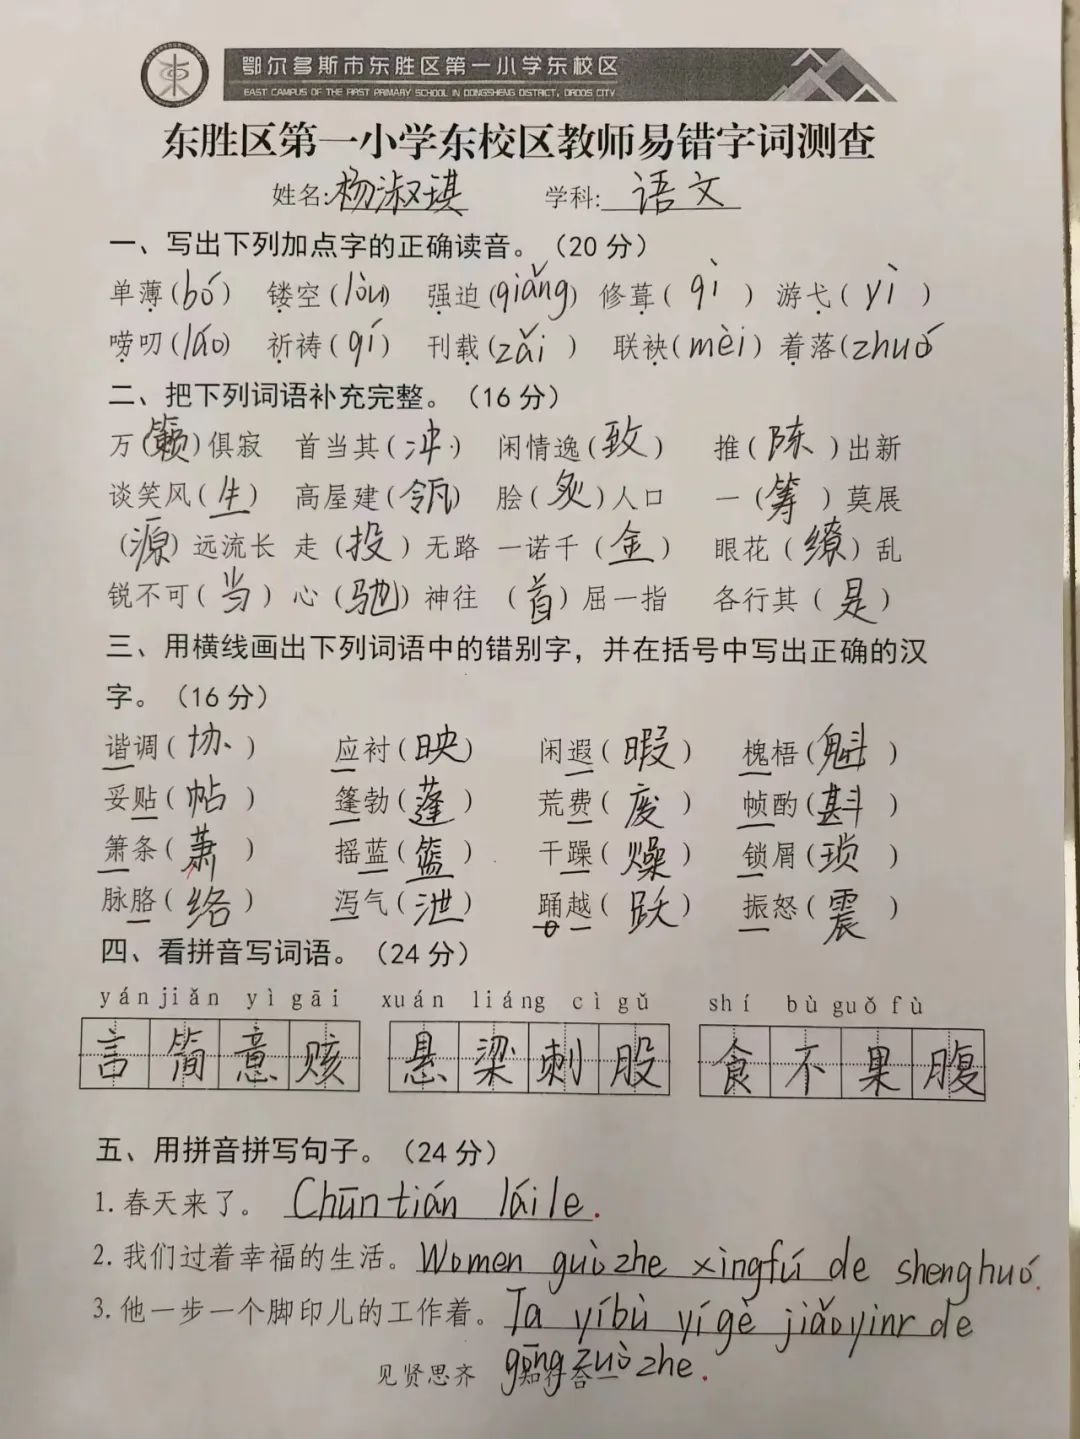 鄂尔多斯市东胜区第一小学东校区
EAST CAMPUS OF THE FIRST PRIMARY SCHOOL IN DONGSHENG DISTRICT, ORDOS CITY
东胜区第一小学东校区教师易错字词测查
姓名:杨淑琪 学科:语文
一、写出下列加点字的正确读音。（20 分）
单薄(bó) 镂空(lòu) 强迫(qiǎng) 修葺(qì) 游弋(yì)
唠叨(láo) 祈祷(qí) 刊载(zǎi) 联袂(mèi) 着落(zhuó
二、把下列词语补充完整。（16 分）
万(籁)俱寂 首当其(冲) 闲情逸(致) 推(陈)出新
谈笑风(生) 高屋建(瓴) 脍(炙)人口 一(筹)莫展
(源)远流长 走(投)无路 一诺千(金) 眼花(缭)乱
锐不可(当) 心(驰)神往 (首)屈一指 各行其(是)
三、用横线画出下列词语中的错别字，并在括号中写出正确的汉
字。（16 分）
谐调(协) 应衬(映) 闲遐(暇) 槐梧(魁)
妥贴(帖) 篷勃(蓬) 荒费(废) 帧酌(斟)
箫条(萧) 摇蓝(篮) 干躁(燥) 锁屑(琐)
脉胳(络) 泻气(泄) 踊越(跃) 振怒(震)
四、看拼音写词语。（24 分）
yán jiǎn yì gāi xuán liáng cì gǔ shí bù guǒ fù
言简意赅 悬梁刺股 食不果腹
五、用拼音拼写句子。（24 分）
1. 春天来了。 Chūn tián lái le.
2. 我们过着幸福的生活。Women guò zhe xìngfú de shenghuó.
3. 他一步一个脚印儿的工作着。Ta yíbù yígè jiǎoyinr de
gōng zuò zhe.
见贤思齐 知行合一